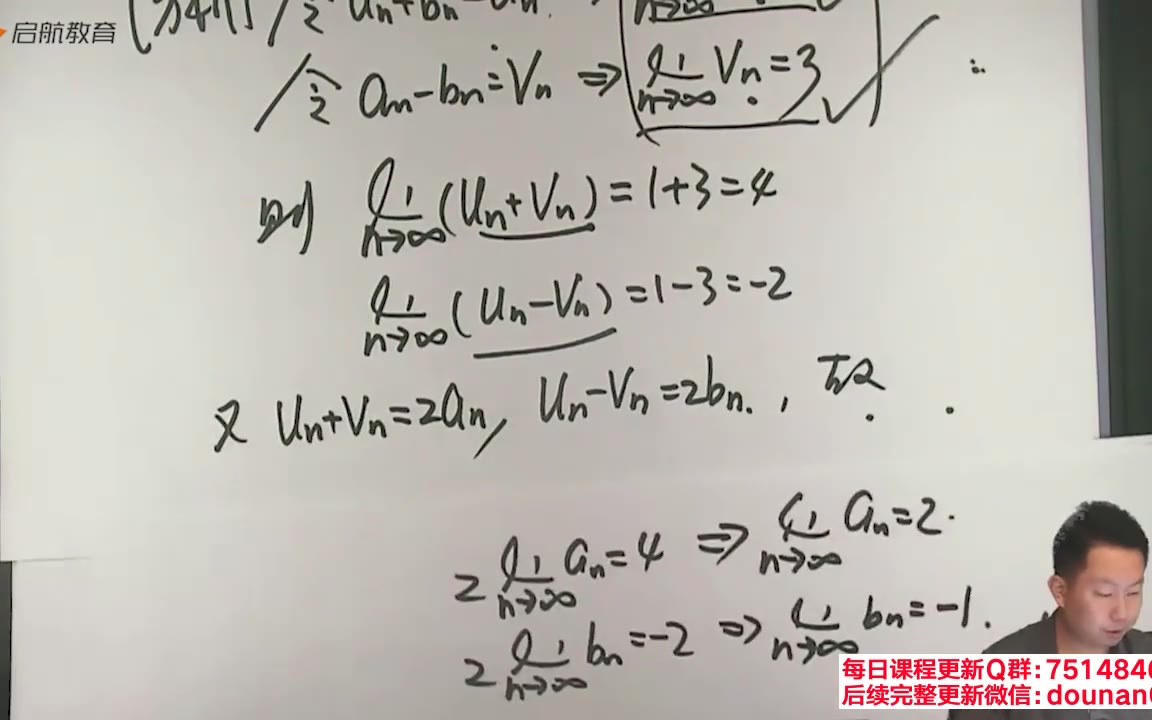 启航教育
[分析] / 令 an+bn=un.
n→∞
/ 令 an-bn=Vn ⇒ lim n→∞ Vn=3 ∴
则 lim n→∞ (Un+Vn)=1+3=4
lim n→∞ (Un-Vn)=1-3=-2
又 Un+Vn=2an, Un-Vn=2bn., 故
2 lim n→∞ an=4 ⇒ lim n→∞ an=2.
2 lim n→∞ bn=-2 ⇒ lim n→∞ bn=-1.
每日课程更新Q群:7514840
后续完整更新微信:dounan